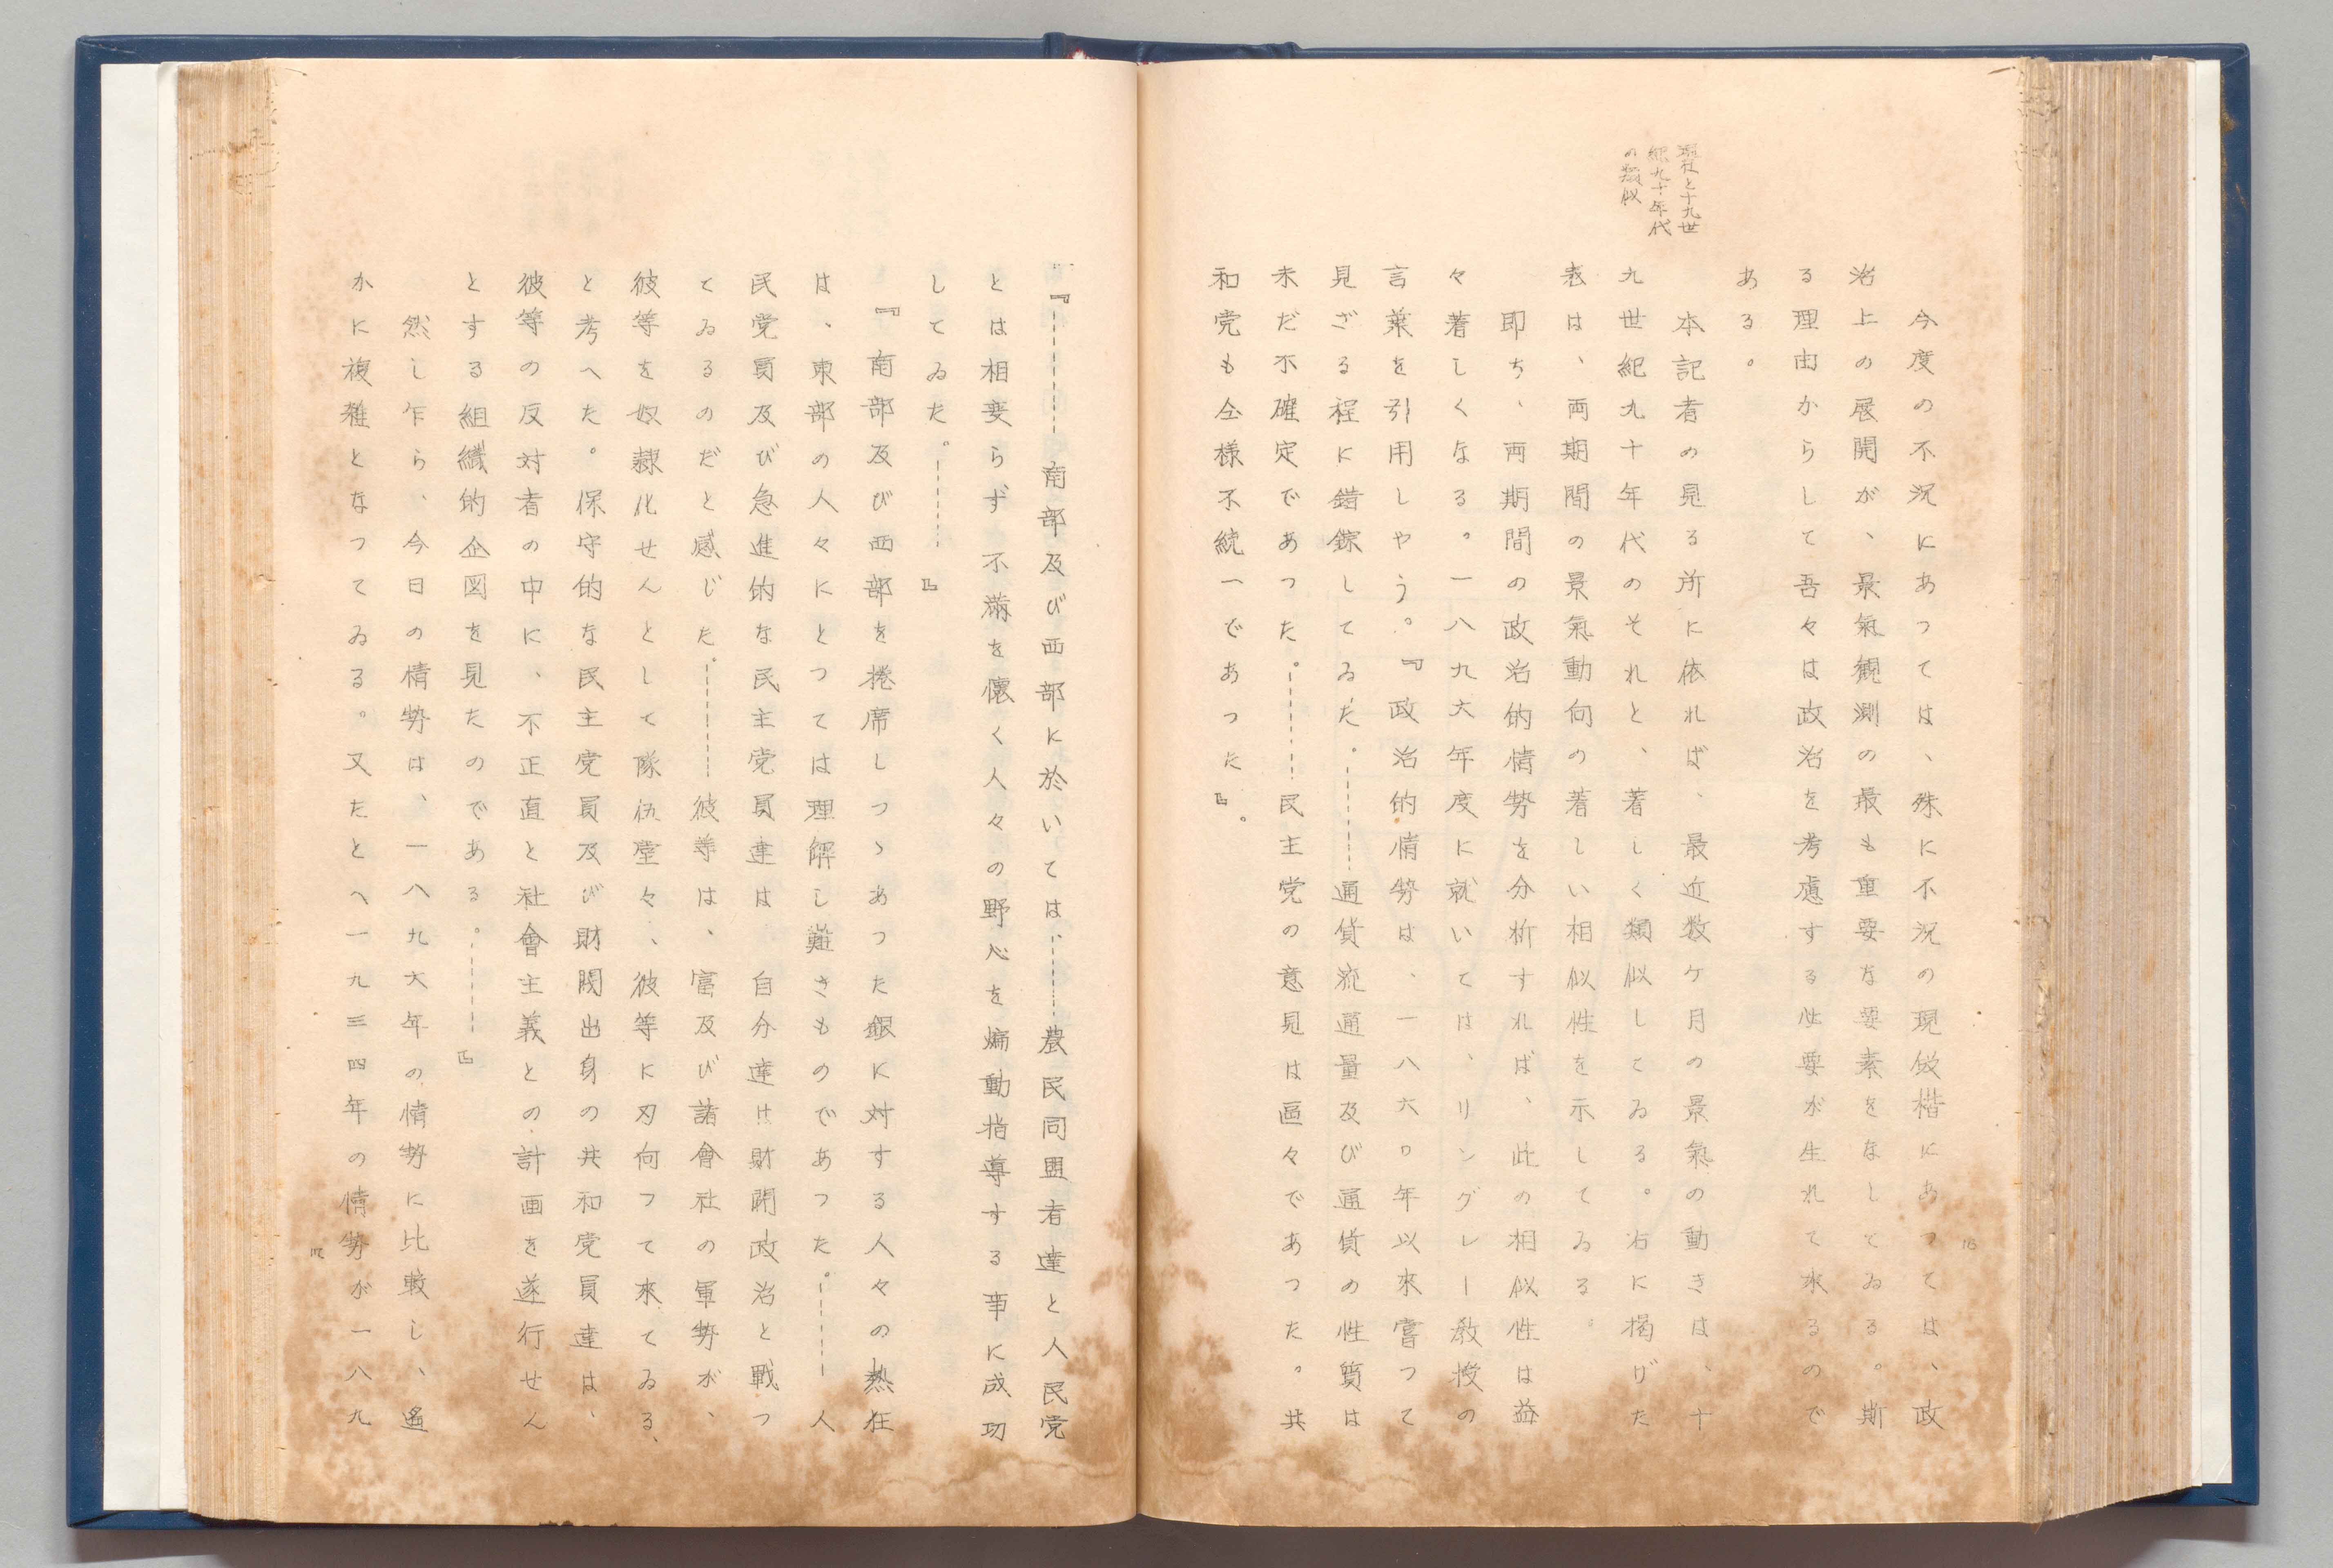 現在と十九世
紀九十年代
の類似
今度の不況にあつては、殊に不況の現段楷にあつては、政
治上の展開が、景氣観測の最も重要な要素をなしてゐる。斯
る理由からして吾々は政治を考慮する必要が生れて来るので
ある。
本記者の見る所に依れば、最近数ケ月の景氣の動きは、十
九世紀九十年代のそれと、著しく類似してゐる。右に掲げた
表は、両期間の景氣動向の著しい相似性を示してゐる。
即ち、両期間の政治的情勢を分析すれば、此の相似性は益
々著しくなる。一八九六年度に就いては、リングレー教授の
言葉を引用しやう。『政治的情勢は、一八六〇年以來嘗つて
見ざる程に錯綜してゐた。………通貨流通量及び通貨の性質は
未だ不確定であつた。………民主党の意見は區々であつた。共
和党も仝様不統一であつた』。
16
『………南部及び西部に於いては、………農民同盟者達と人民党
とは相変らず不満を懐く人々の野心を煽動指導する事に成功
してゐた。………』
『南部及び西部を捲席しつゝあつた銀に対する人々の熱狂
は、東部の人々にとつては理解し難きものであつた。………人
民党員及び急進的な民主党員達は自分達は財閥政治と戰つ
てゐるのだと感じた。………彼等は、富及び諸會社の軍勢が、
彼等を奴隷化せんとして隊伍堂々、彼等に刃向つて來てゐる、
と考へた。保守的な民主党員及び財閥出身の共和党員達は、
彼等の反対者の中に、不正直と社會主義との計画を遂行せん
とする組織的企図を見たのである。………』
然し乍ら、今日の情勢は、一八九六年の情勢に比較し、遙
かに複雑となつてゐる。又たとへ一九三四年の情勢が一八九